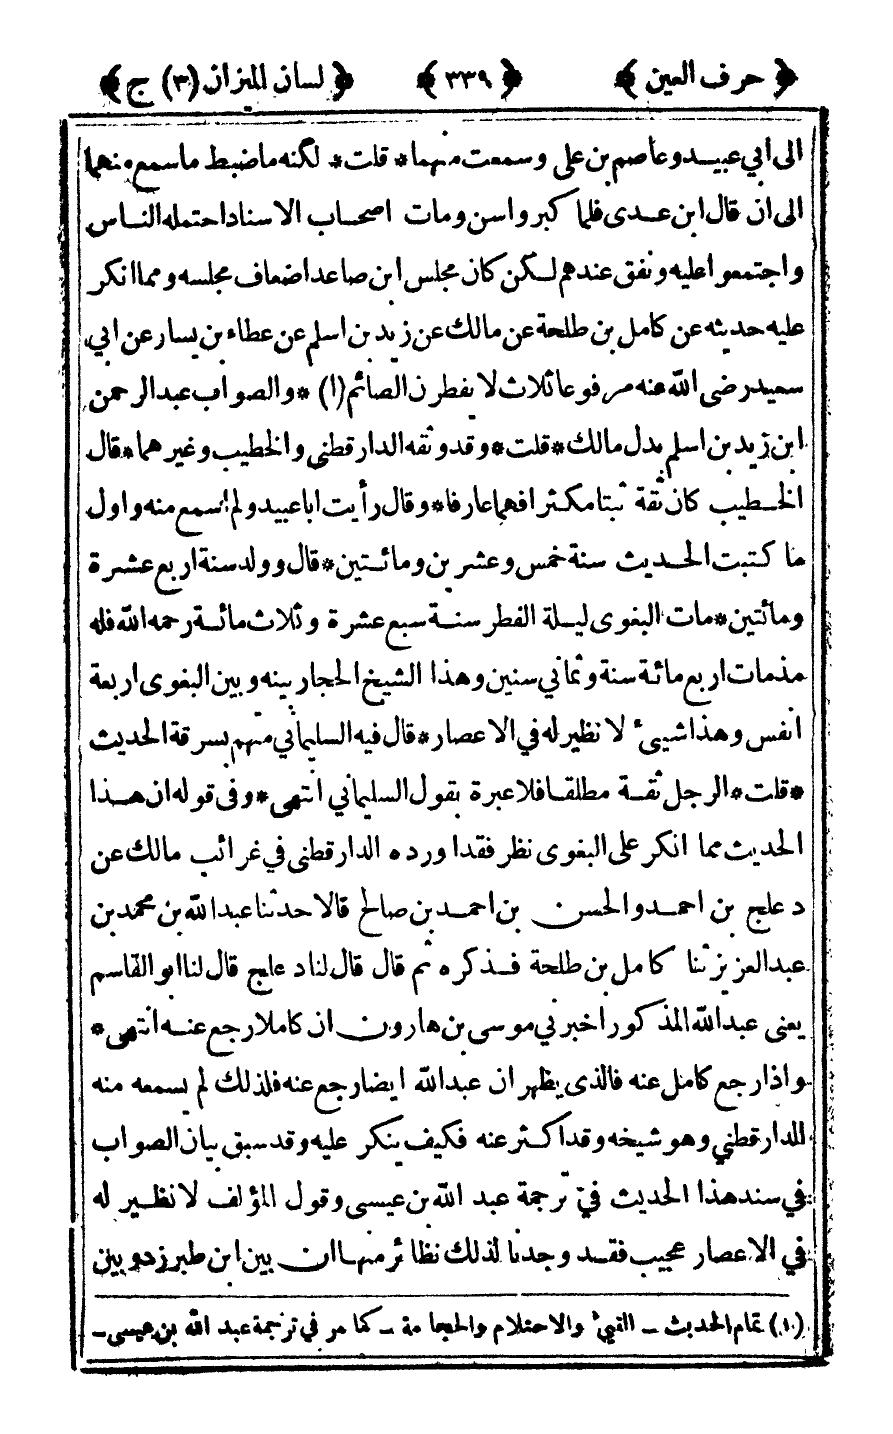 ﴿ حرف العين ﴾ ﴿ ٣٣٩ ﴾ ﴿ لسان الميزان (٣) ج ﴾
الى ابي عبيد وعاصم بن على وسمعت منهما * قلت * لكنه ما ضبط ما سمع منهما
الى ان قال ابن عدى فلما كبر واسن ومات اصحاب الاسناد احتمله الناس
واجتمعوا عليه ونفق عندهم لكن كان مجلس ابن صاعد اضعاف مجلسه ومما انكر
عليه حديثه عن كامل بن طلحة عن مالك عن زيد بن اسلم عن عطاء بن يسار عن ابي
سعيد رضى الله عنه مرفوعا ثلاث لا يفطرن الصائم (١) * والصواب عبد الرحمن
ابن زيد بن اسلم بدل مالك * قلت * وقد وثقه الدارقطنى والخطيب وغيرهما * قال
الخطيب كان ثقة ثبتا مكثرا فهما عارفا * وقال رأيت ابا عبيد ولم اسمع منه واول
ما كتبت الحديث سنة خمس وعشرين ومائتين * قال وولد سنة اربع عشرة
ومائتين * مات البغوى ليلة الفطر سنة سبع عشرة وثلاث مائة رحمه الله فله
مذمات اربع مائة سنة وثماني سنين وهذا الشيخ الحجار بينه وبين البغوى اربعة
انفس وهذا شيئ لا نظير له في الاعصار * قال فيه السليماني متهم بسرقة الحديث
* قلت * الرجل ثقة مطلقا فلا عبرة بقول السليماني انتهى * وفى قوله ان هذا
الحديث مما انكر على البغوى نظر فقد اورده الدارقطنى في غرائب مالك عن
دعلج بن احمد والحسن بن احمد بن صالح قالا حدثنا عبد الله بن محمد بن
عبد العزيز ثنا كامل بن طلحة فذكره ثم قال قال لنا دعلج قال لنا ابو القاسم
يعنى عبد الله المذكور اخبرني موسى بن هارون ان كاملا رجع عنه انتهى *
واذا رجع كامل عنه فالذى يظهر ان عبد الله ايضا رجع عنه فلذلك لم يسمعه منه
الدارقطني وهو شيخه وقد اكثر عنه فكيف ينكر عليه وقد سبق بيان الصواب
في سند هذا الحديث في ترجمة عبد الله بن عيسى وقول المؤلف لا نظير له
في الاعصار عجيب فقد وجدنا لذلك نظائر منها ان بين ابن طبرزد وبين
(١) تمام الحديث ـ القيئ والاحتلام والحجامة ـ كما مر في ترجمة عبد الله بن عيسى ـ